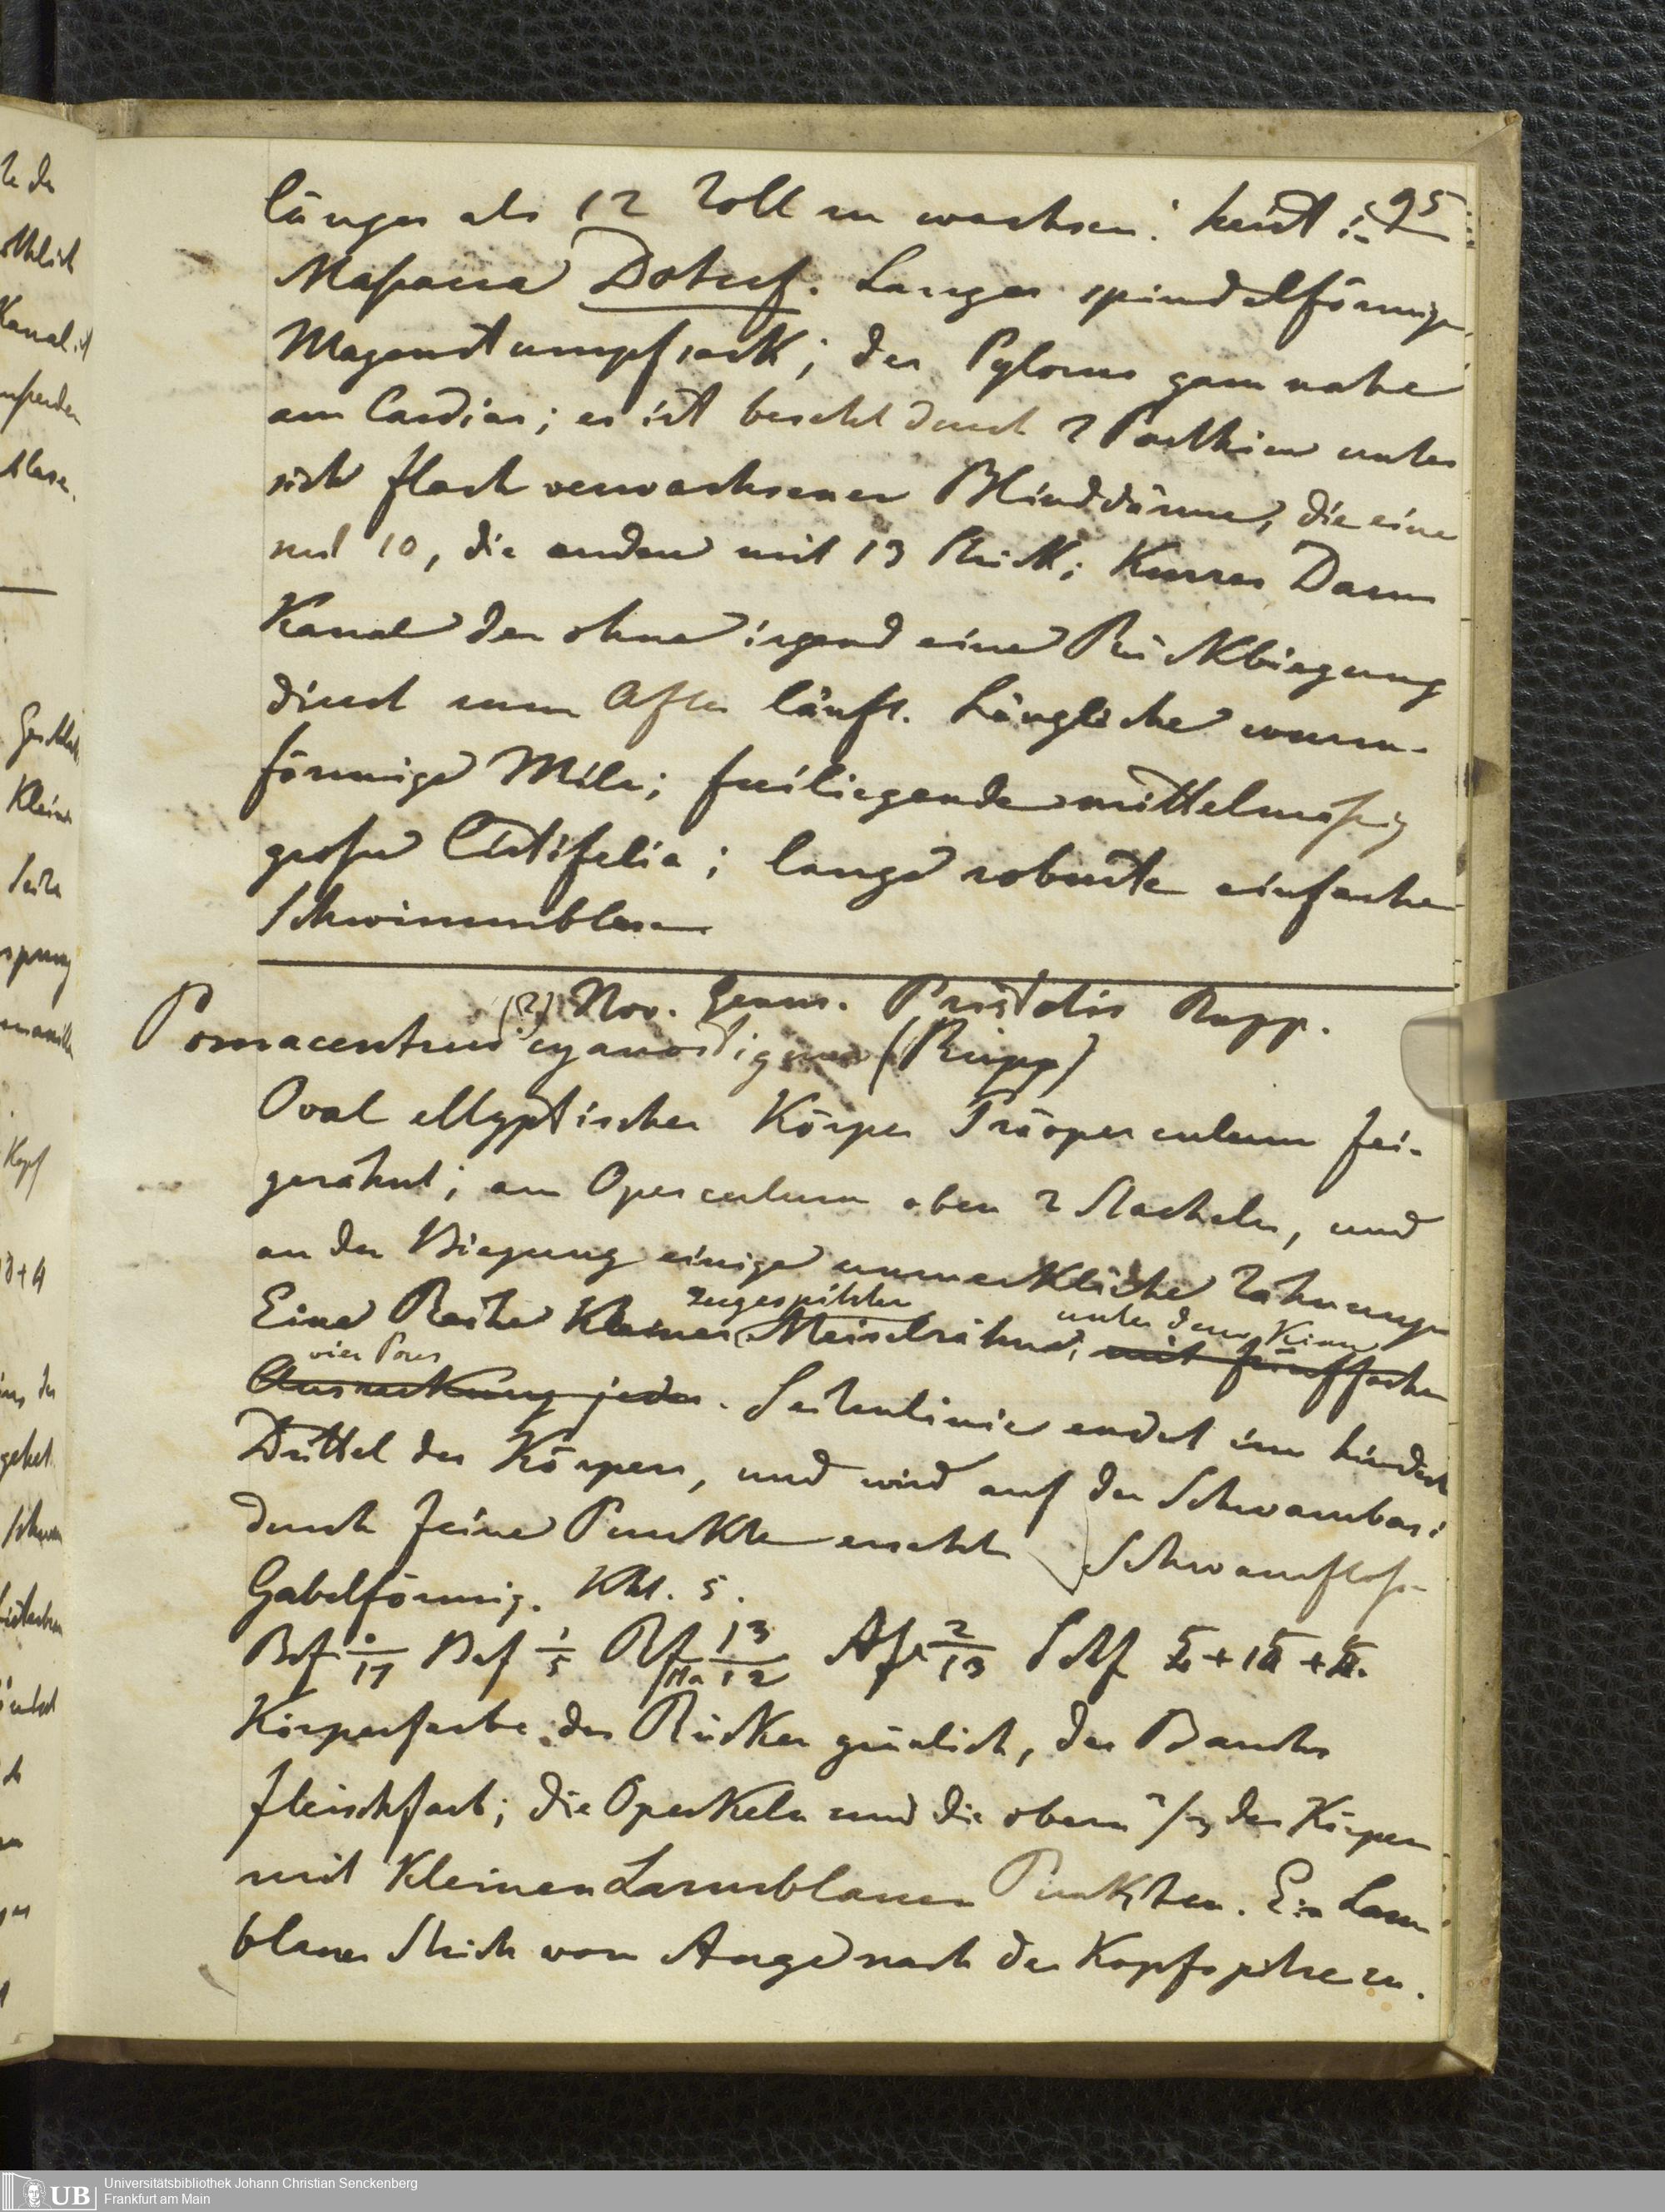 95
länger als 12 Zoll zu wachsen. heist in
Massaua Dotuf. Langer spindelförmiger
Magenstumpfsack; der Pylorus ganz nahe
am Cardias; er ist besetzt durch 2 Parthien unter
sich flach verwachsener Blinddärme, die eine
mit 10, die andere mit 13 Stück; Kurzer Darm
Kanal der ohne irgend eine Rückbiegung
direct zum After läuft. Längliche wurm-
förmige Milz; freiliegende mittelmäsig
grose; lange robuste einfache
Schwimmblase
(?) Nov. Genus. Pristotis Rupp.
Pomacentrus cyanostigma (Rüpp)
Oval ellyptischer Körper Präoperculum fei-
gezähnt; am Operculum oben 2 Stacheln, und
an der Biegung einige unmerkliche Zähnunge
zugespitzter unter dem Kinn
Eine Reihe Kleiner Meiselzähne, mit fünffacher
vier Pores
Auszackung jeder. Seitenlinie endet im hinderst
Drittel des Körpers, und wird auf der Schwanzbasi
durch feine Punkte ersetzt Schwanzflosse
Gabelförmig. Kht. 5.
Brf 17 Bf 1/5 Rf 13/12 Af 2/13 Sch f
Körperfarbe des Rückens grünlich, des Bauches
fleischfarb; die Operkeln und die obern 2/3 des Körpers
mit Kleinen Lasurblauen Punkten. Ein Lasur
blauer Strich vom Auge nach der Kopfspitze zu.
Universitätsbibliothek Johann Christian Senckenberg
Frankfurt am Main
UB